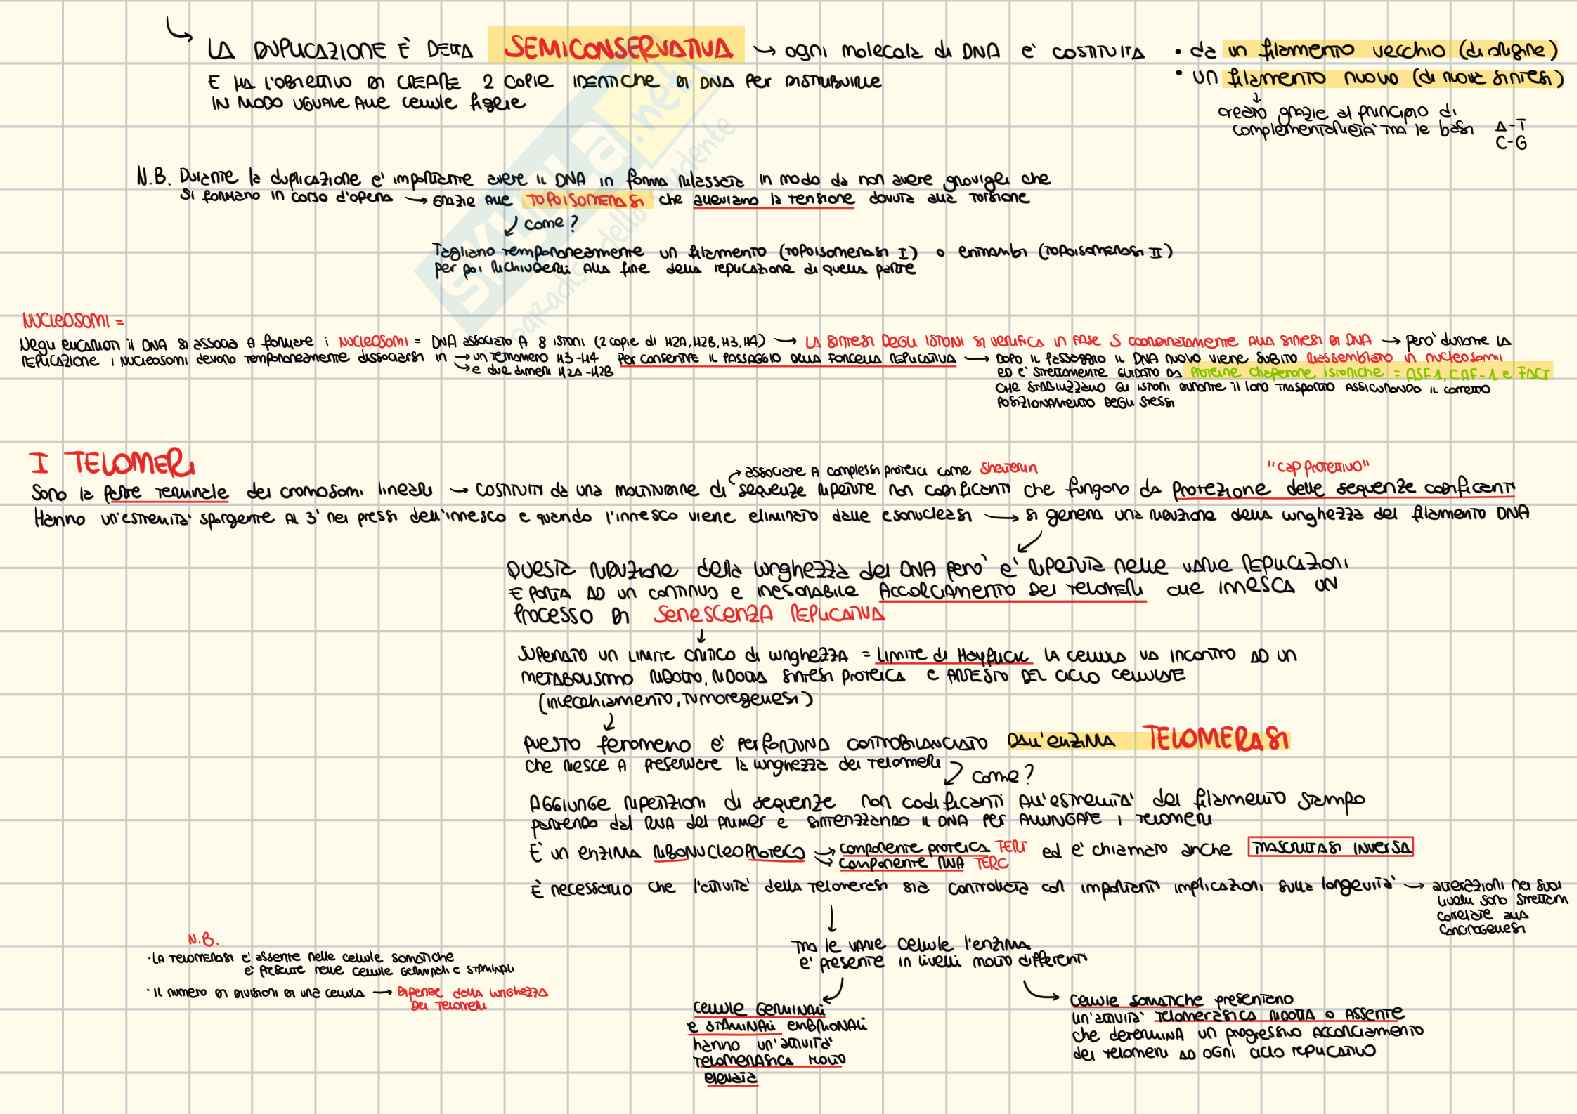 LA DUPLICAZIONE È DETTA SEMICONSERVATIVA → ogni molecola di DNA è COSTITUITA • da un filamento vecchio (di origine)
• un filamento nuovo (di nuova sintesi)
E HA L'OBIETTIVO DI CREARE 2 COPIE IDENTICHE DI DNA PER DISTRIBUIRLE
IN MODO UGUALE ALLE CELLULE figlie
creato grazie al principio di
complementarietà tra le basi A-T
C-G
N.B. Durante la duplicazione è importante avere il DNA in forma rilassata in modo da non avere grovigli che
si formano in corso d'opera → GRAZIE ALLE TOPOISOMERASI che alleviano la tensione dovuta alla torsione
come?
Tagliano temporaneamente un filamento (TOPOISOMERASI I) o entrambi (TOPOISOMERASI II)
per poi richiuderli alla fine della replicazione di quella parte
SKUOLA.net
PARADISO dello studente
NUCLEOSOMI =
Negli eucarioti il DNA si associa a formare i NUCLEOSOMI = DNA associato A 8 istoni (2 copie di H2A, H2B, H3, H4) → LA SINTESI DEGLI ISTONI SI VERIFICA IN FASE S COORDINATAMENTE ALLA SINTESI DI DNA → però durante la
REPLICAZIONE i NUCLEOSOMI devono temporaneamente dissociarsi in → un tetramero H3-H4
→ e due dimeri H2A-H2B
PER CONSENTIRE IL PASSAGGIO DELLA FORCELLA REPLICATIVA → DOPO IL PASSAGGIO IL DNA NUOVO VIENE SUBITO riassemblato in nucleosomi
ED È STRETTAMENTE GUIDATO DA PROTEINE chaperone istoniche = ASF1, CAF-1 e FACT
CHE STABILIZZANO GLI ISTONI DURANTE IL LORO TRASPORTO ASSICURANDO IL CORRETTO
POSIZIONAMENTO DEGLI STESSI
I TELOMERI
→ associate A complessi proteici come Shelterin
"cap protettivo"
Sono la parte terminale dei cromosomi lineari → COSTITUITI da una moltitudine di sequenze ripetute non codificanti che fungono da protezione delle sequenze codificanti
Hanno un'estremità sporgente al 3' nei pressi dell'innesco e quando l'innesco viene eliminato dalle esonucleasi → si genera una riduzione della lunghezza del filamento DNA
QUESTA RIDUZIONE della lunghezza del DNA però è ripetuta nelle varie REPLICAZIONI
E PORTA AD UN CONTINUO E INESORABILE ACCORCIAMENTO DEI TELOMERI CHE INNESCA UN
PROCESSO DI SENESCENZA REPLICATIVA
SUPERATO UN LIMITE CRITICO di lunghezza = LIMITE di HAYFLICK LA CELLULA VA INCONTRO AD UN
METABOLISMO RIDOTTO, RIDOTTA SINTESI PROTEICA E ARRESTO DEL CICLO CELLULARE
(invecchiamento, TUMOREGENESI)
QUESTO fenomeno è PER FORTUNA CONTROBILANCIATO DALL'ENZIMA TELOMERASI
che riesce A preservare la lunghezza dei TELOMERI
come?
AGGIUNGE RIPETIZIONI di sequenze non codificanti ALL'ESTREMITÀ del filamento stampo
partendo dal RNA del primer e sintetizzando il DNA PER ALLUNGARE i TELOMERI
È un enzima RIBONUCLEOPROTEICO → componente proteica TERT
→ componente RNA TERC
ed è chiamato anche TRASCRITTASI INVERSA
È necessario che l'attività della telomerasi sia controllata con importanti implicazioni sulla longevità → alterazioni nei suoi
livelli sono strettam
correlate alla
cancerogenesi
N.B.
• LA TELOMERASI è assente nelle cellule somatiche
è presente nelle cellule germinali e staminali
• Il numero di divisioni di una cellula → dipende della lunghezza
dei telomeri
tra le varie cellule l'enzima
è presente in livelli molto differenti
CELLULE GERMINALI
e STAMINALI EMBRIONALI
hanno un'attività
TELOMERASICA MOLTO
elevata
CELLULE SOMATICHE presentano
un'attività TELOMERASICA RIDOTTA o ASSENTE
che determina un progressivo ACCORCIAMENTO
dei telomeri AD OGNI ciclo replicativo